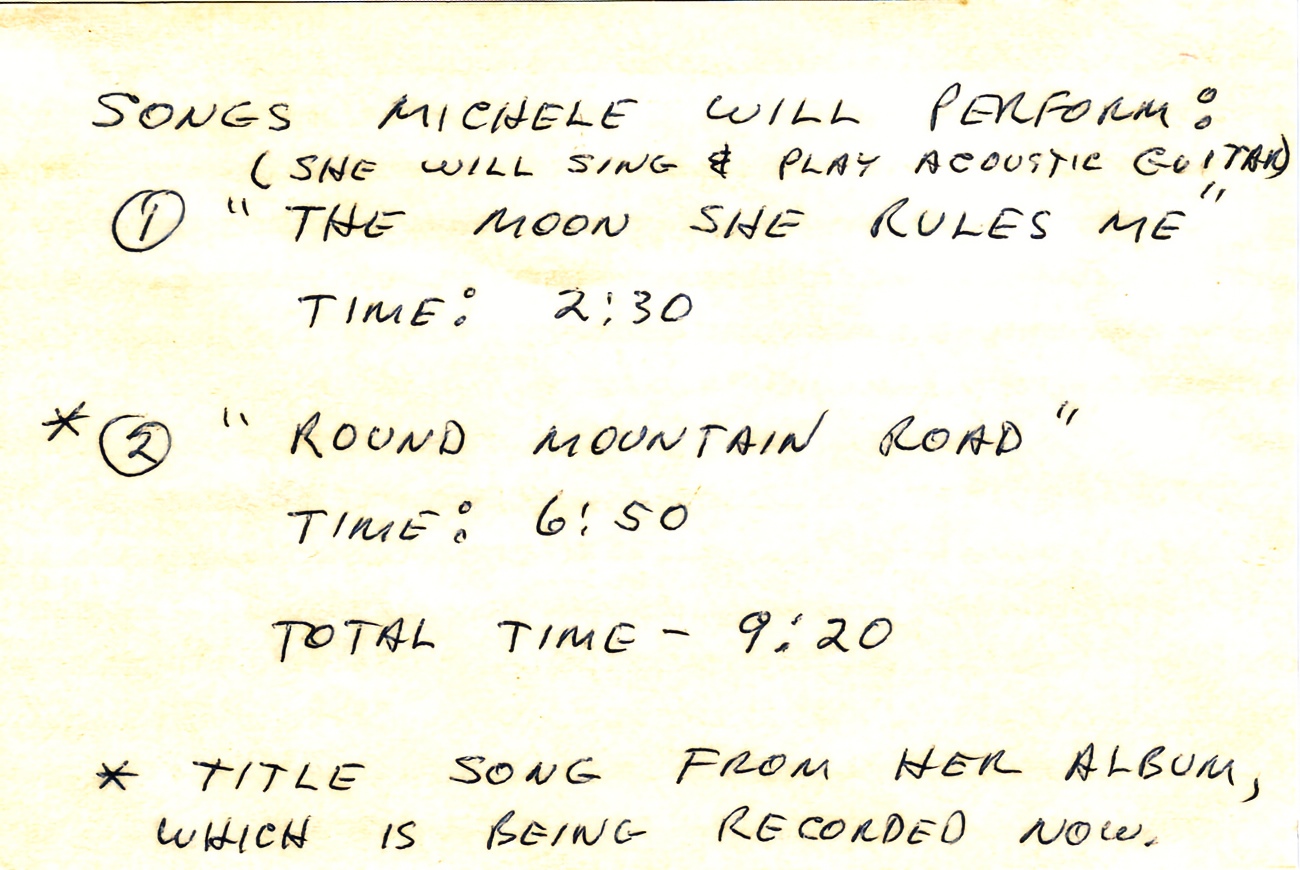 SONGS MICHELE WILL PERFORM:
(SHE WILL SING & PLAY ACOUSTIC GUITAR)
① "THE MOON SHE RULES ME"
TIME: 2:30
* ② "ROUND MOUNTAIN ROAD"
TIME: 6:50
TOTAL TIME - 9:20
* TITLE SONG FROM HER ALBUM,
WHICH IS BEING RECORDED NOW.